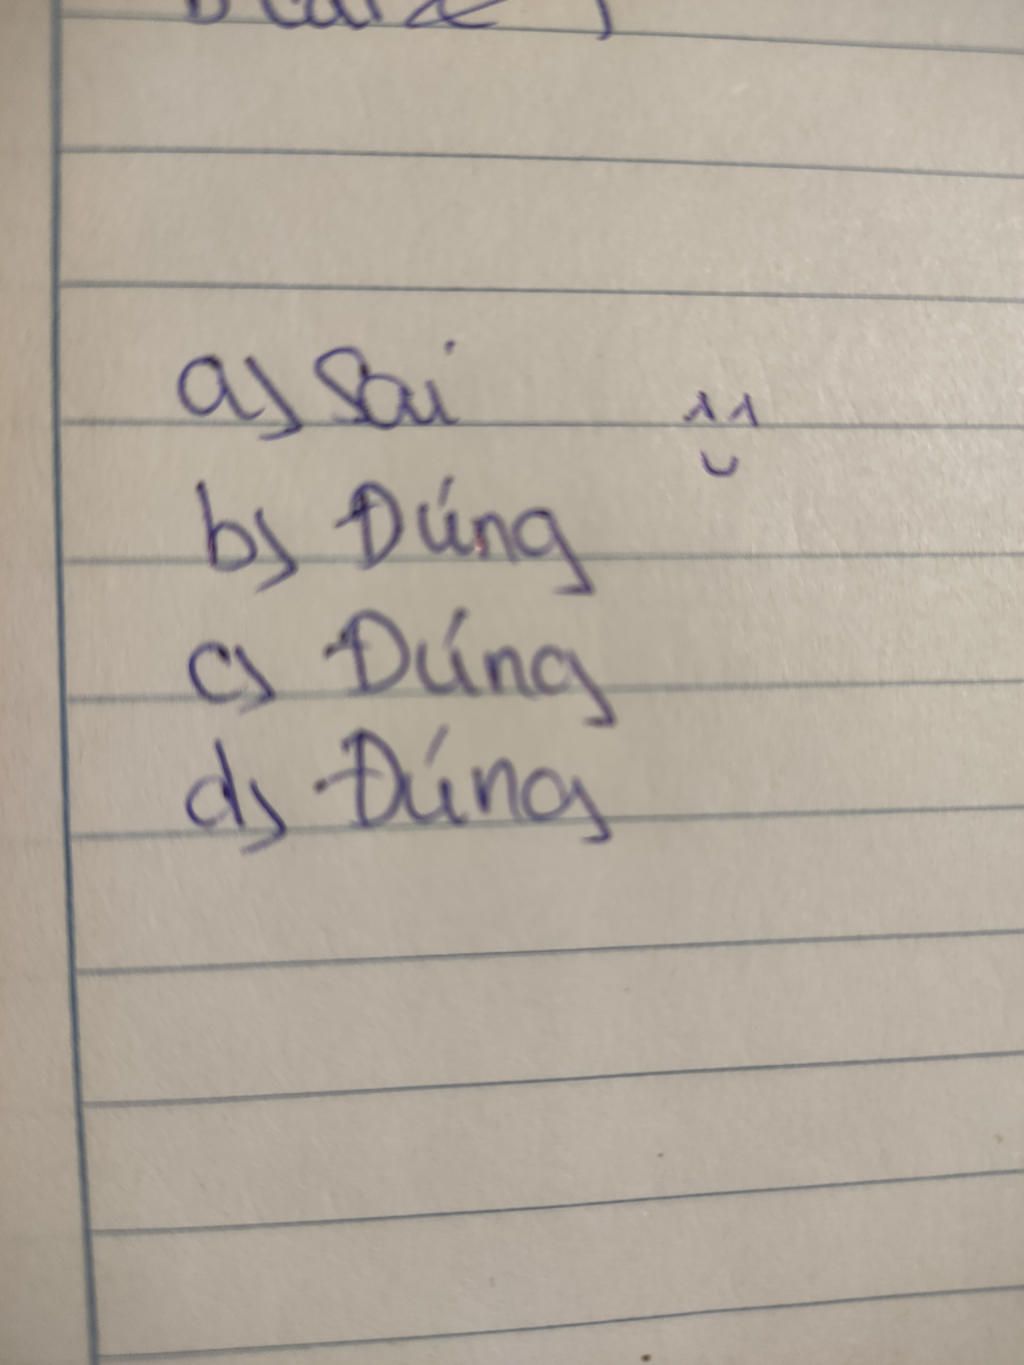 a) Sai
b) Đúng
c) Đúng
d) Đúng